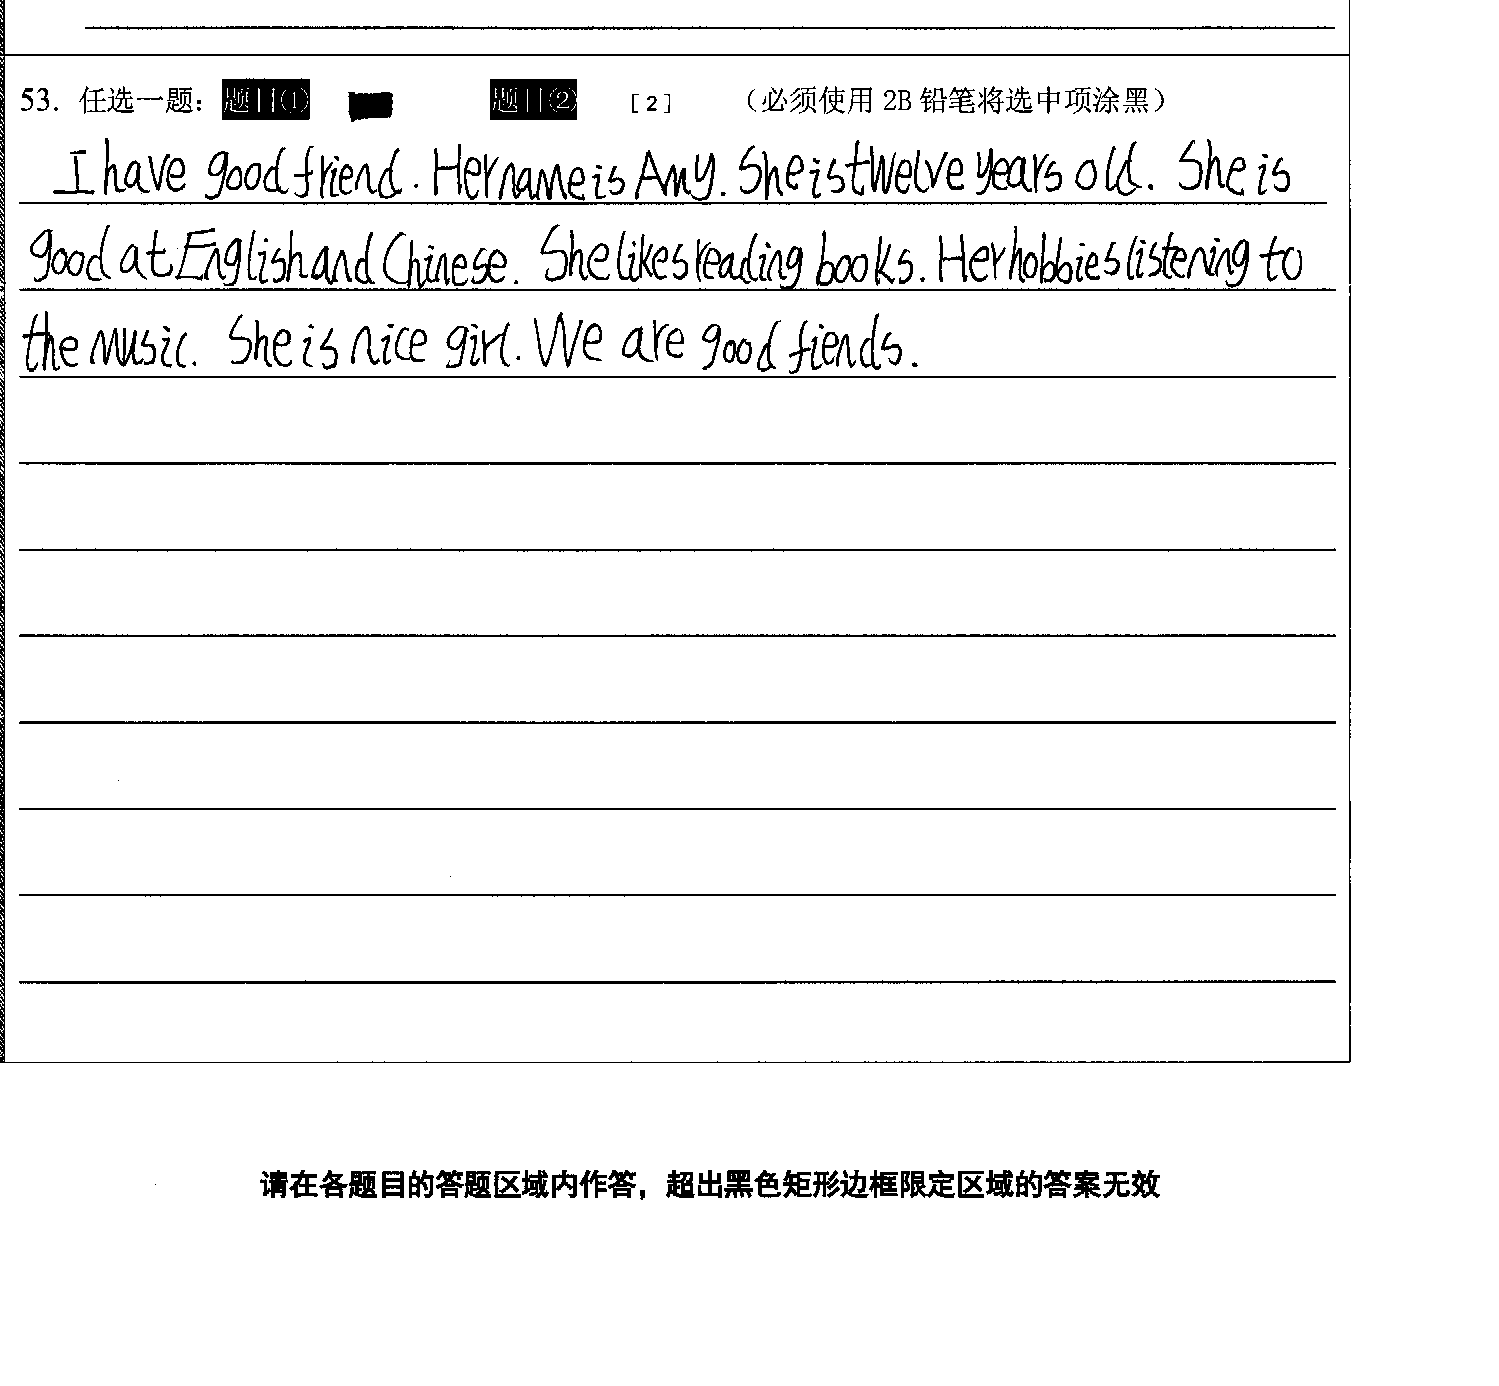 53. 任选一题： 题目① 题目② [ 2 ] （必须使用 2B 铅笔将选中项涂黑）
I have good friend. Her name is Amy. She is twelve years old. She is
good at English and Chinese. She likes reading books. Her hobbies listening to
the music. She is nice girl. We are good fiends.
请在各题目的答题区域内作答，超出黑色矩形边框限定区域的答案无效